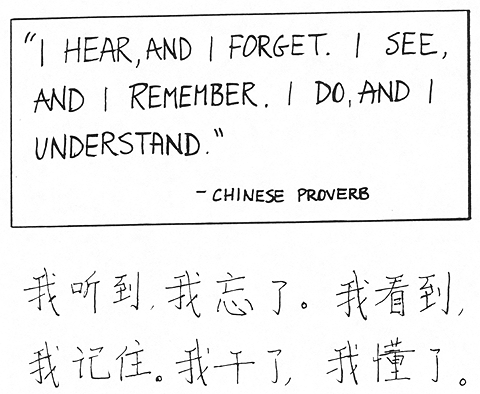 "I HEAR, AND I FORGET. I SEE,
AND I REMEMBER. I DO, AND I
UNDERSTAND."
- CHINESE PROVERB
我听到,我忘了。我看到,
我记住。我干了,我懂了。